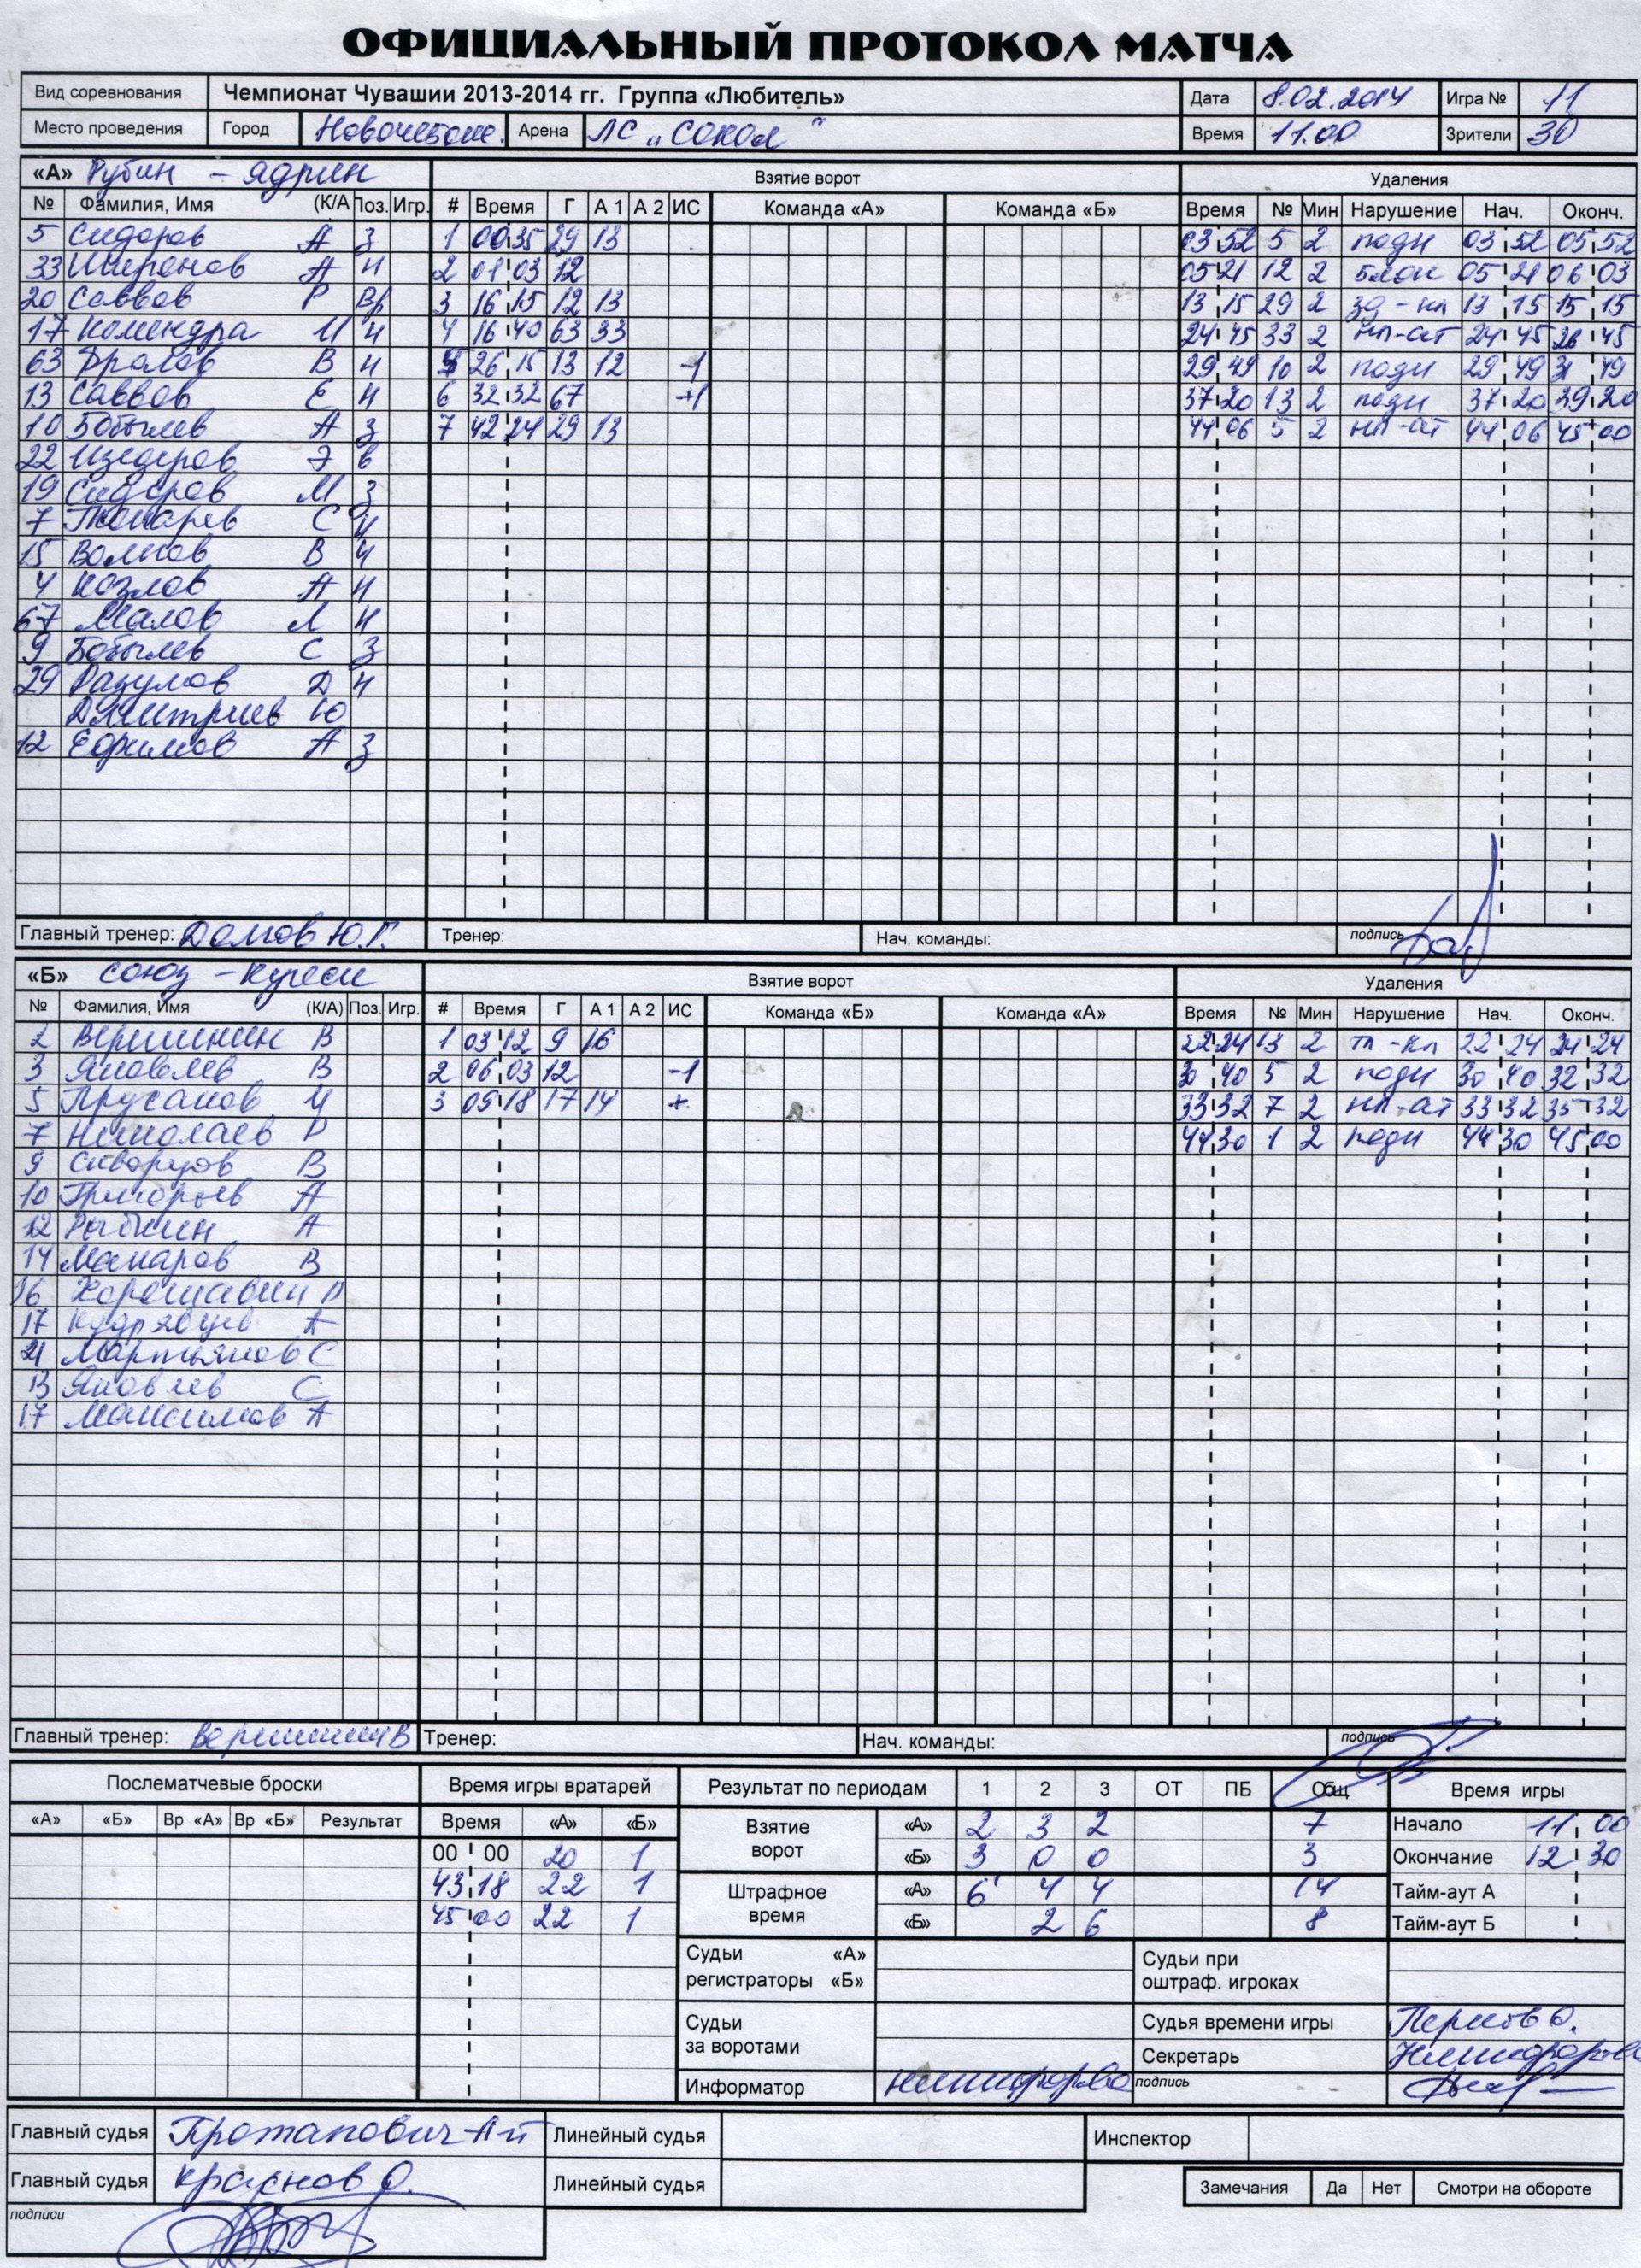 ОФИЦИАЛЬНЫЙ ПРОТОКОЛ МАТЧА
Вид соревнования Чемпионат Чувашии 2013-2014 гг. Группа «Любитель» Дата 8.02.2014 Игра № 11
Место проведения Город Новочебокс. Арена ЛС „Сокол“ Время 11.00 Зрители 30
«А» Рубин - Ядрин Взятие ворот Удаления
№ Фамилия, Имя (К/А Поз. Игр. # Время Г А 1 А 2 ИС Команда «А» Команда «Б» Время № Мин Нарушение Нач. Оконч.
5 Сидоров А З 1 00 35 29 13 03 52 5 2 подн 03 52 05 52
33 Миронов А Н 2 01 03 12 05 21 12 2 блок 05 21 06 03
20 Саввов Р Вр 3 16 15 12 13 13 15 29 2 зд-кл 13 15 15 15
17 Комендра И Н 4 16 40 63 33 24 45 33 2 нп-ат 24 45 26 45
63 Фролов В Н 5 26 15 13 12 -1 29 49 10 2 подн 29 49 31 49
13 Саввов Е Н 6 32 32 67 +1 37 20 13 2 подн 37 20 39 20
10 Бобылев А З 7 42 24 29 13 44 06 5 2 нп-ат 44 06 45 00
22 Э в
19 Сидоров М З
7 С Н
15 Волков В Н
4 Козлов А Н
67 Малов Л Н
9 Бобылев С З
29 Разумов Д Н
Дмитриев Ю
12 Ефимов А З
Главный тренер: Долгов Ю.Г. Тренер: Нач. команды: подпись
«Б» Союз - Кугеси Взятие ворот Удаления
№ Фамилия, Имя (К/А) Поз. Игр. # Время Г А 1 А 2 ИС Команда «Б» Команда «А» Время № Мин Нарушение Нач. Оконч.
2 Вершинин В 1 03 12 9 16 22 24 13 2 22 24 24 24
3 Яковлев В 2 06 03 12 -1 30 40 5 2 подн 30 40 32 32
5 Прусаков И 3 09 18 17 14 + 33 32 7 2 нп-ат 33 32 35 32
7 Николаев Р 44 30 1 2 подн 44 30 45 00
9 Скворцов В
10 Григорьев А
12 Рыбкин А
14 Макаров В
16 Хорошавин
17 Кудрявцев А
21 Мартьянов С
13 Яковлев С
17 Максимов А
Главный тренер: Вершинин В Тренер: Нач. команды: подпись
Послематчевые броски Время игры вратарей Результат по периодам 1 2 3 ОТ ПБ Общ Время игры
«А» «Б» Вр «А» Вр «Б» Результат Время «А» «Б» Взятие ворот «А» 2 3 2 7 Начало 11 00
00 00 20 1 «Б» 3 0 0 3 Окончание 12 30
43 18 22 1 Штрафное время «А» 6 4 4 14 Тайм-аут А
45 00 22 1 «Б» 2 6 8 Тайм-аут Б
Судьи регистраторы «А» «Б» Судьи при оштраф. игроках
Судьи за воротами Судья времени игры Перлов О.
Секретарь Никифорова
Информатор Никифорова подпись
Главный судья Протапович А Линейный судья Инспектор
Главный судья Краснов О. Линейный судья Замечания Да Нет Смотри на обороте
подписи